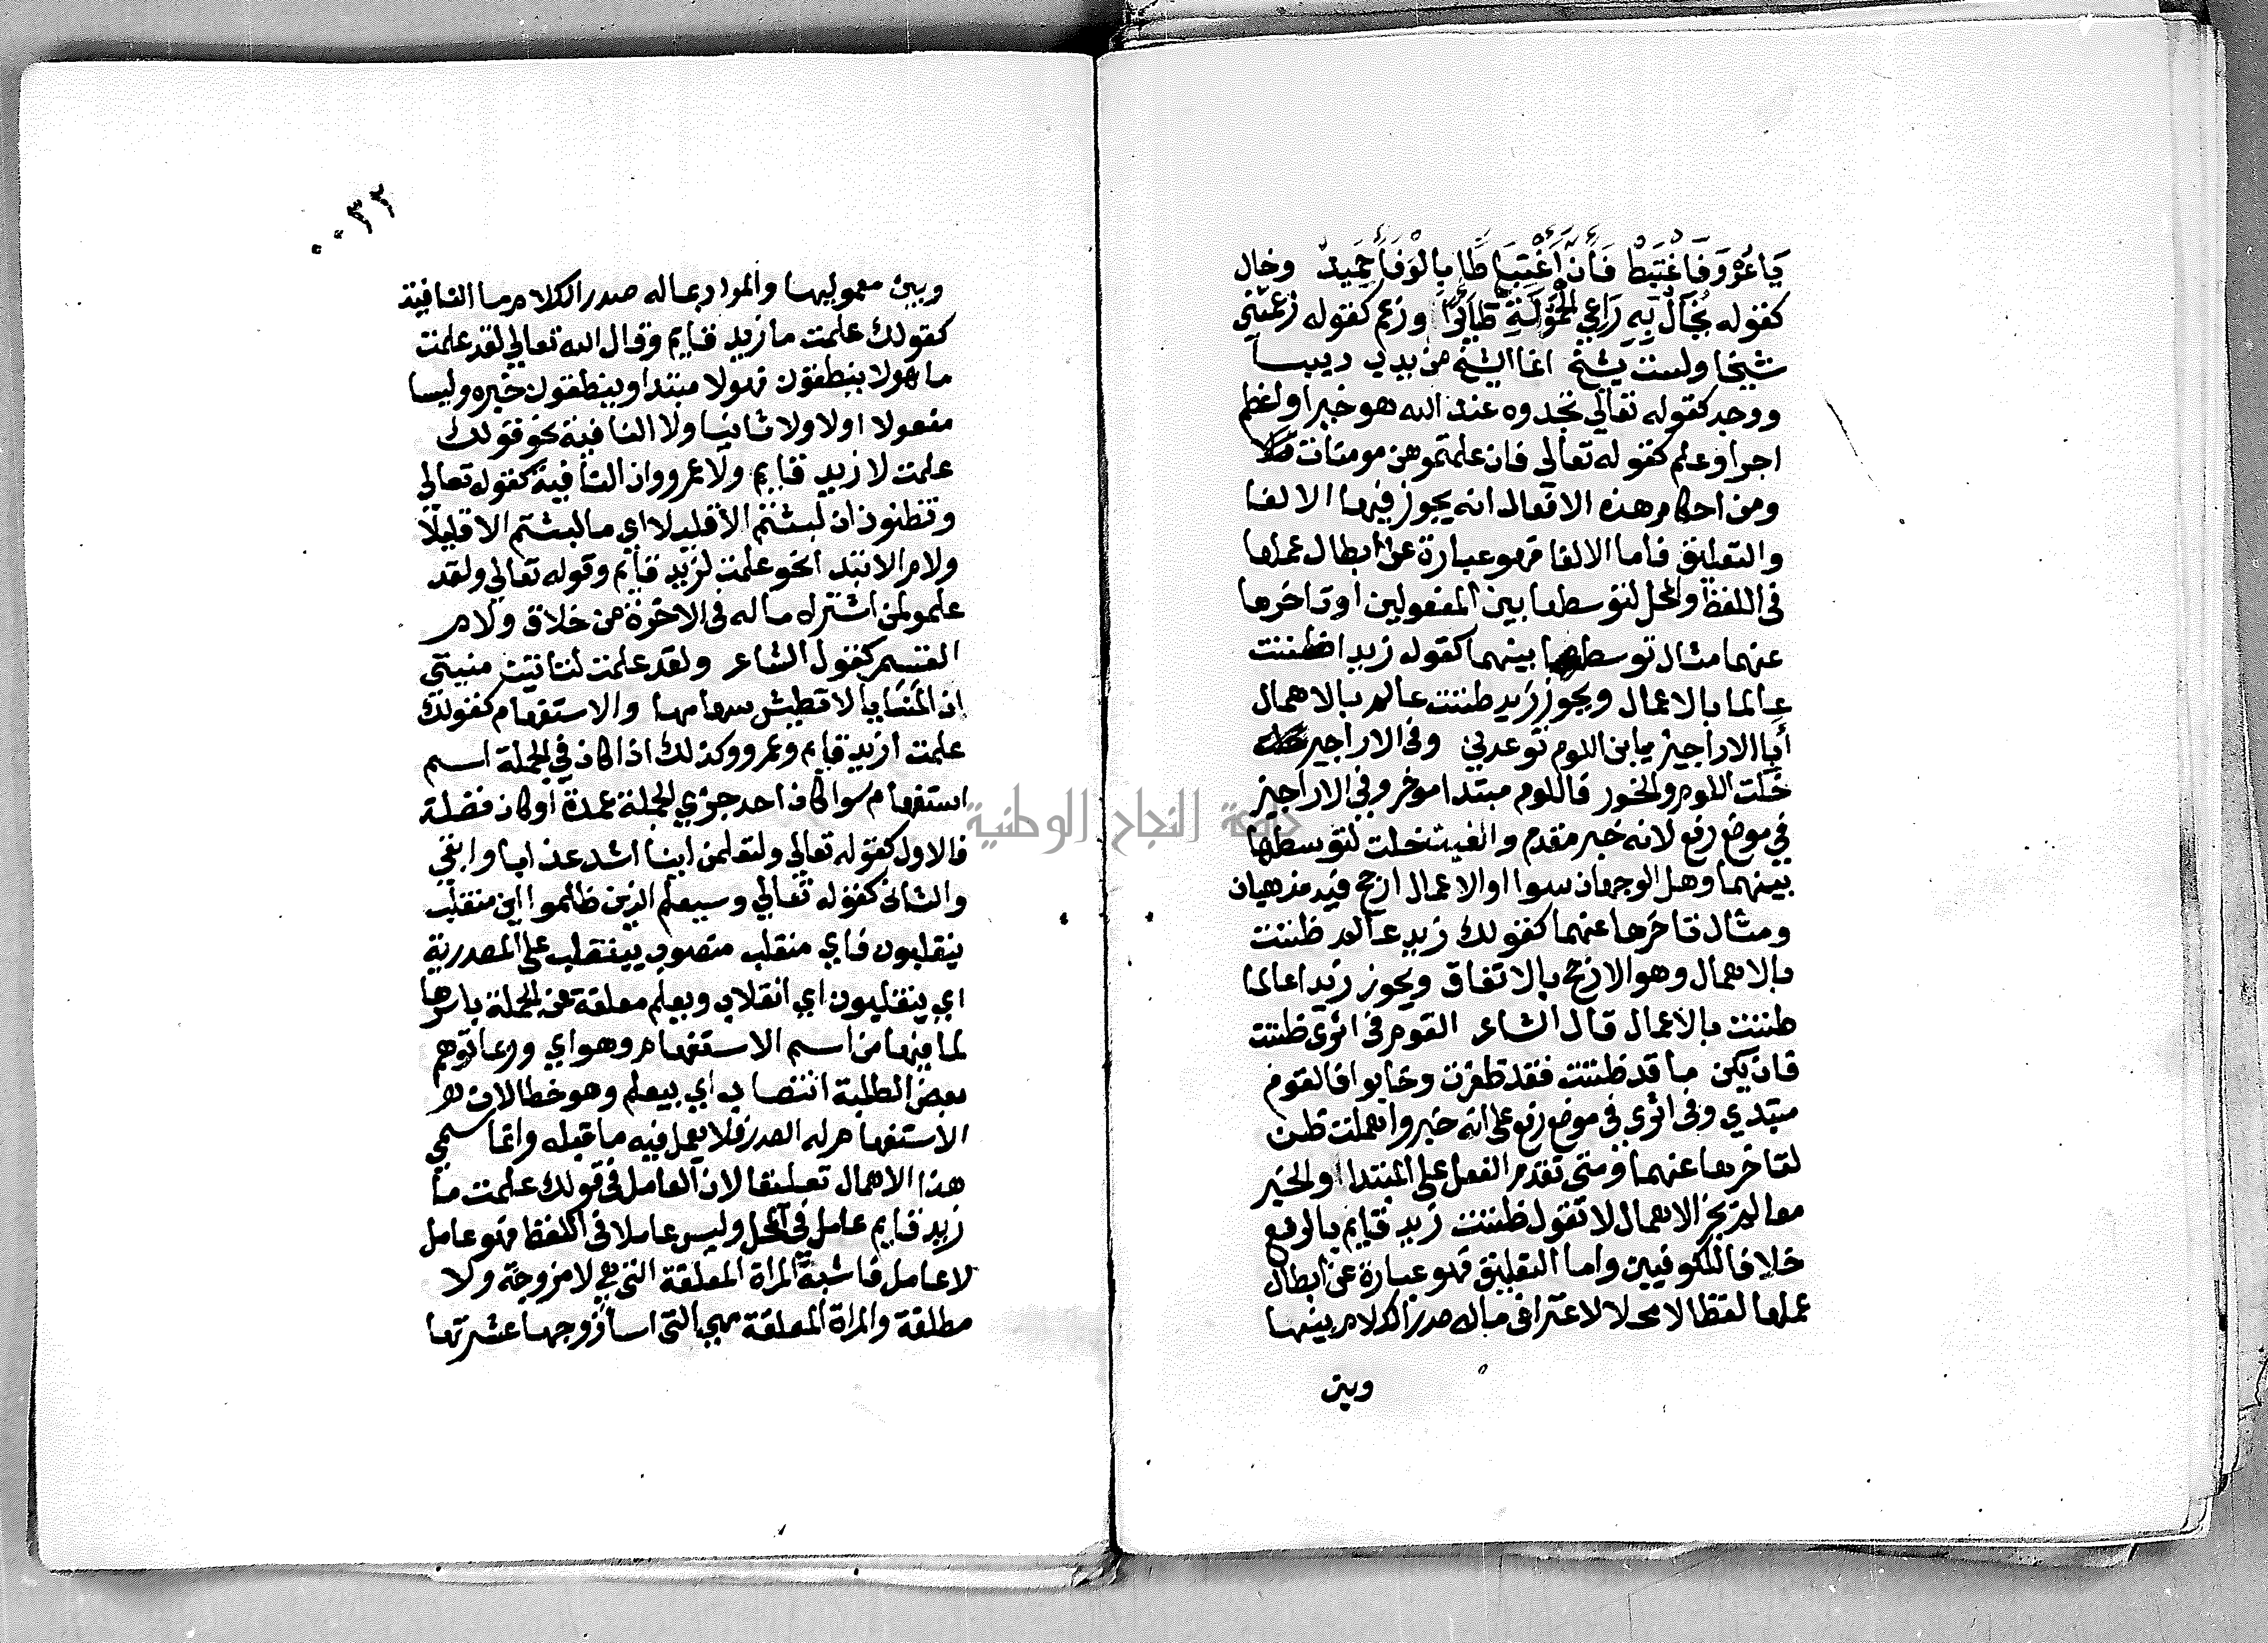 يَا عُرْوَ فَاغْتَبِطْ فَأَنَّ اغْتِبَاطًا بِالْوَفَاءِ حَمِيدُ وخال
كقوله يُخَالُ بِهِ رَاعِي الْحَمُولَةِ طَائِرًا وزعم كقوله زعمتني
شيخا ولست بشيخ انما الشيخ من يدب دبيبا
ووجد كقوله تعالي تجدوه عند الله هو خيرا واعظم
اجرا وعلم كقوله تعالي فان علمتموهن مومنات فلا
ومن احكام هذه الافعال انه يجوز فيها الالغا
والتعليق فاما الالغا فهو عبارة عن ابطال عملها
في اللفظ والمحل لتوسطها بين المفعولين او تاخرها
عنهما مثال توسطها بينهما كقوله زيدا ظننت
عالما بالاعمال ويجوز زيد ظننت عالم بالاهمال
أبا الاراجيز يا بن اللوم توعدني وفي الاراجيز
خلت اللوم والخور فاللوم مبتدا موخر وفي الاراجيز
في موضع رفع لانه خبر مقدم والغيت خلت لتوسطها
بينهما وهل الوجهان سوا او الاعمال ارجح فيه مذهبان
ومثال تاخرها عنهما كقولك زيد عالم ظننت
بالاهمال وهو الارجح بالاتفاق ويجوز زيدا عالما
ظننت بالاعمال قال الشاعر القوم في اثري ظننت
فان يكن ما قد ظننت فقد ظفرت وخابوا فالقوم
مبتدي وفي اثري في موضع رفع علي انه خبر واهملت ظن
لتاخرها عنهما ومتي تقدم الفعل علي المبتدا والخبر
معا لم يجز الاهمال لا تقول ظننت زيد قايم بالرفع
خلافا للكوفيين واما التعليق فهو عبارة عن ابطال
عملها لفظا لا محلا لاعتراض ماله صدر الكلام بينها
وبين
٠٠٣٢
وبين معموليها والمراد بماله صدر الكلام ما النافية
كقولك علمت ما زيد قايم وقال الله تعالي لقد علمت
ما هولا ينطقون فهولا مبتدا وينطقون خبره وليسا
مفعولا اولا ولا ثانيا ولا النافية نحو قولك
علمت لا زيد قايم ولا عمرو وان النافية كقوله تعالي
وتظنون ان لبثتم الا قليلا اي ما لبثتم الا قليلا
ولام الابتدا نحو علمت لزيد قايم وقوله تعالي ولقد
علمو لمن اشتراه ماله في الاخرة من خلاق ولام
القسم كقول الشاعر ولقد علمت لتاتين منيتي
ان المنايا لا تطيش سهامها والاستفهام كقولك
علمت ازيد قايم وعمرو وكذلك اذا كان في الجملة اسم
استفهام سوا كان احد جزي الجملة عمدة او كان فضلة
فالاول كقوله تعالي ولتعلمن اينا اشد عذابا وابقي
والثاني كقوله تعالي وسيعلم الذين ظلموا اي منقلب
ينقلبون فاي منقلب منصوب بينقلب علي المصدرية
اي ينقلبون اي انقلاب ويعلم معلقة عن الجملة باسرها
لما فيها من اسم الاستفهام وهو اي وربما توهم
بعض الطلبة انتصاب اي بيعلم وهو خطا لان
الاستفهام له الصدر فلا يعمل فيه ما قبله وانما سمي
هذا الاهمال تعليقا لان العامل في قولك علمت ما
زيد قايم عامل في المحل وليس عاملا في اللفظ فهو عامل
لا عامل فاشبه المراة المعلقة التي هي لا مزوجة ولا
مطلقة والمراة المعلقة هي التي اسا زوجها عشرتها
جامعة النجاح الوطنية